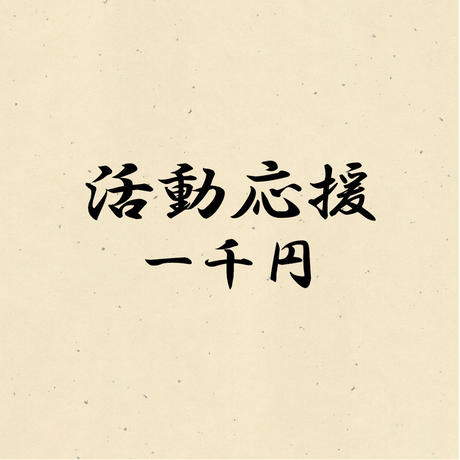 活動応援
一千円